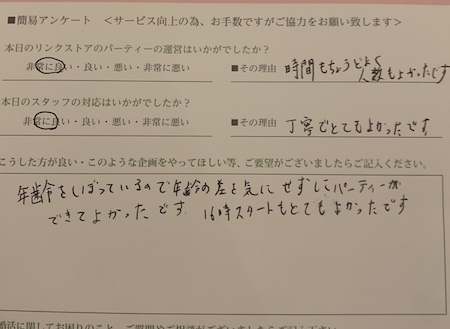 ■簡易アンケート　＜サービス向上の為、お手数ですがご協力をお願い致します＞
本日のリンクストアのパーティーの運営はいかがでしたか？
非常に良い・良い・悪い・非常に悪い
■その理由　時間もちょうどよく
人数もよかったです
本日のスタッフの対応はいかがでしたか？
非常に良い・良い・悪い・非常に悪い
■その理由　丁寧でとてもよかったです
こうした方が良い・このような企画をやってほしい等、ご要望がございましたらご記入ください。
年齢をしぼっているので年齢の差を気にせずにパーティーが
できてよかったです　16時スタートもとてもよかったです
婚活に関してお困りのこと、ご質問やご相談がございましたらご記入ください